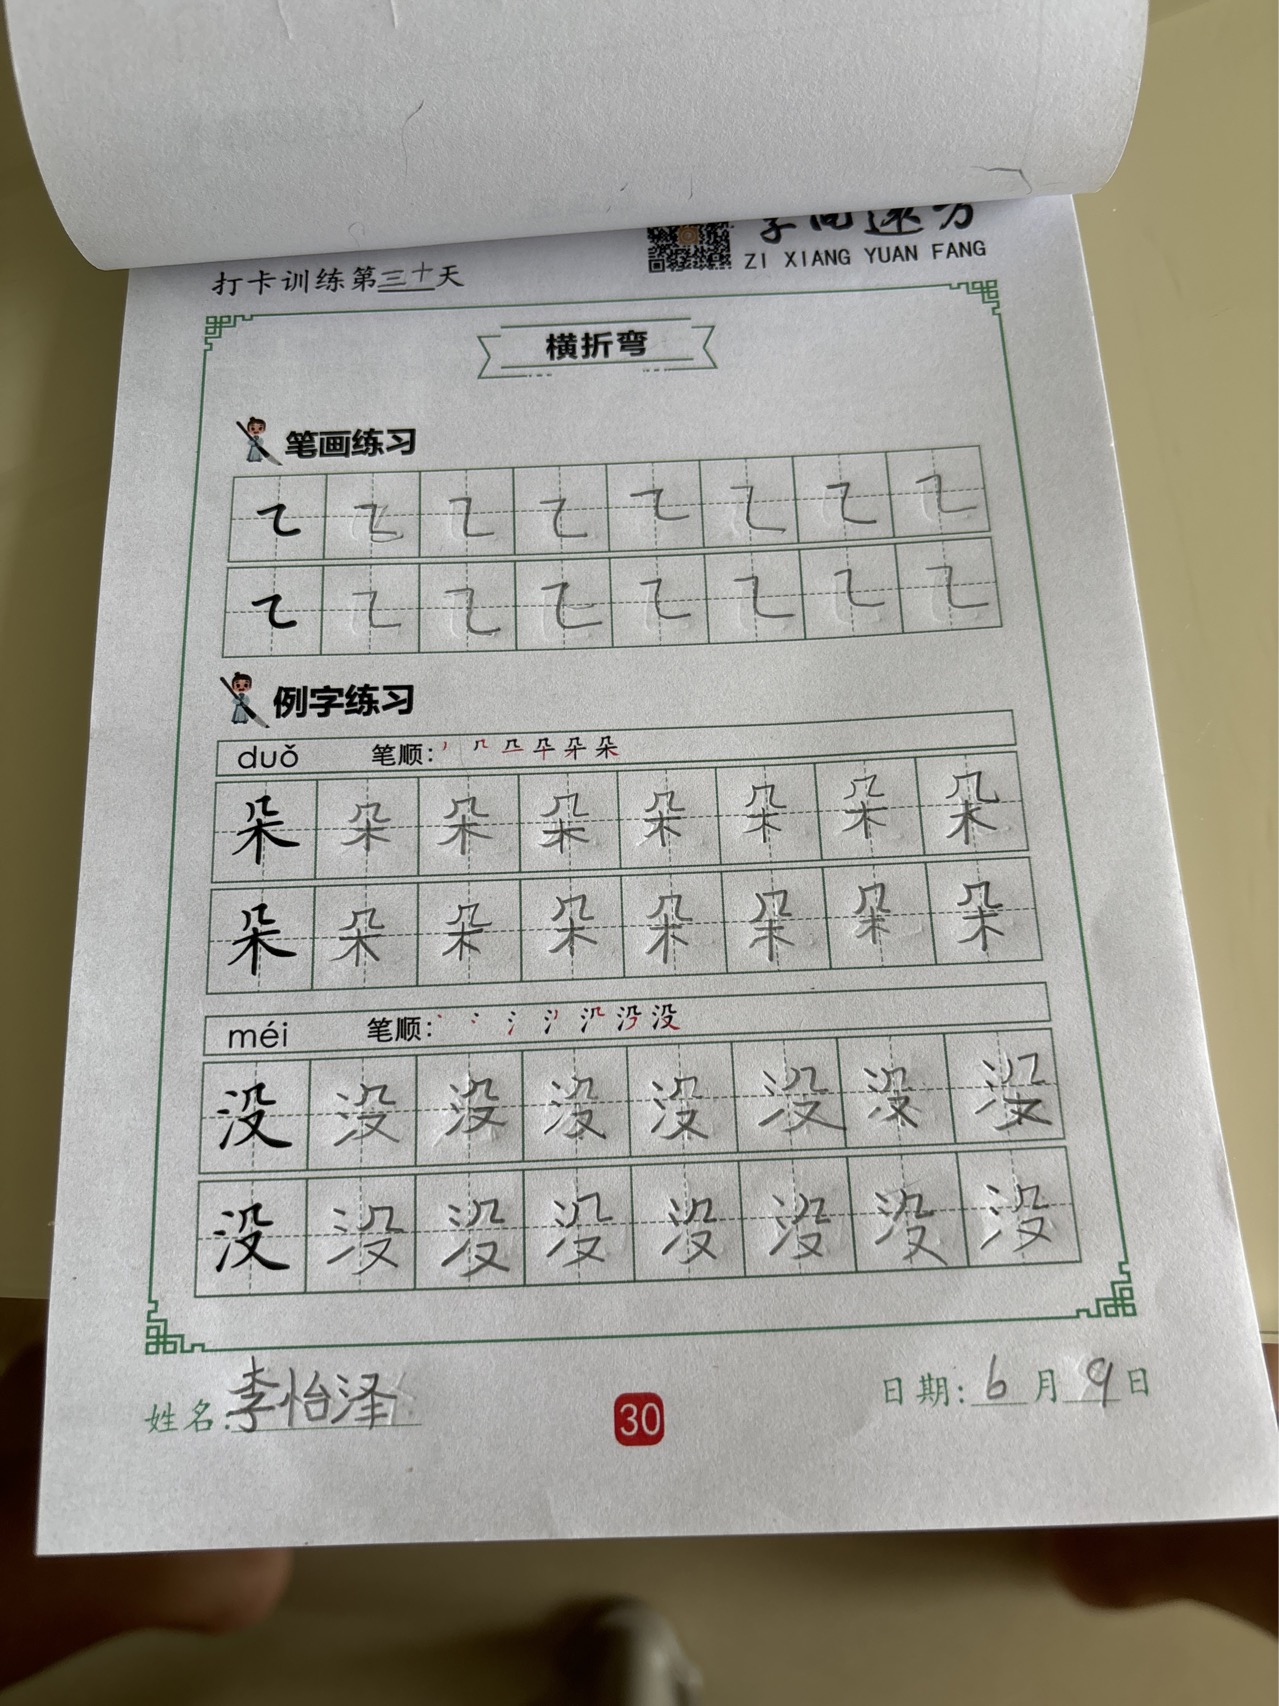 字向远方
ZI XIANG YUAN FANG
打卡训练第三十天
横折弯
笔画练习
例字练习
duǒ 笔顺:
朵 朵 朵 朵 朵 朵 朵 朵
朵 朵 朵 朵 朵 朵 朵 朵
méi 笔顺: 没
没 没 没 没 没 没 没 没
没 没 没 没 没 没 没 没
姓名:李怡泽
30
日期:6月9日